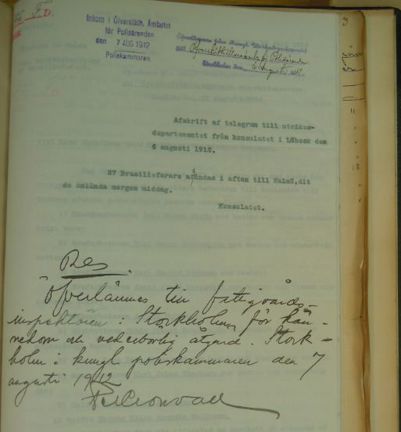 Inkom i Överståth. Ämbetet
för Polisärenden
den 7 AUG 1912
Poliskammaren
Afskrift af telegram till utrikes-
departementet från konsulatet i Lübeck den
6 augusti 1912.
27 Brasiliefarare afsändas i afton till Malmö, dit
de anlända morgon middag.
Konsulatet.
Res.
Öfverlämnes till fattigvårds-
inspektören i Stockholm för kän-
nedom och vederbörlig åtgärd. Stock-
holm i kungl poliskammaren den 7
augusti 1912